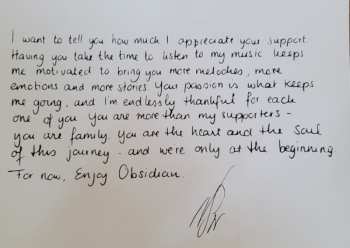 I want to tell you how much I appreciate your support.
Having you take the time to listen to my music keeps
me motivated to bring you more melodies, more
emotions and more stories. Your passion is what keeps
me going, and I'm endlessly thankful for each
one of you. You are more than my supporters -
you are family. You are the heart and the soul
of this journey - and we're only at the beginning
For now, Enjoy Obsidian.